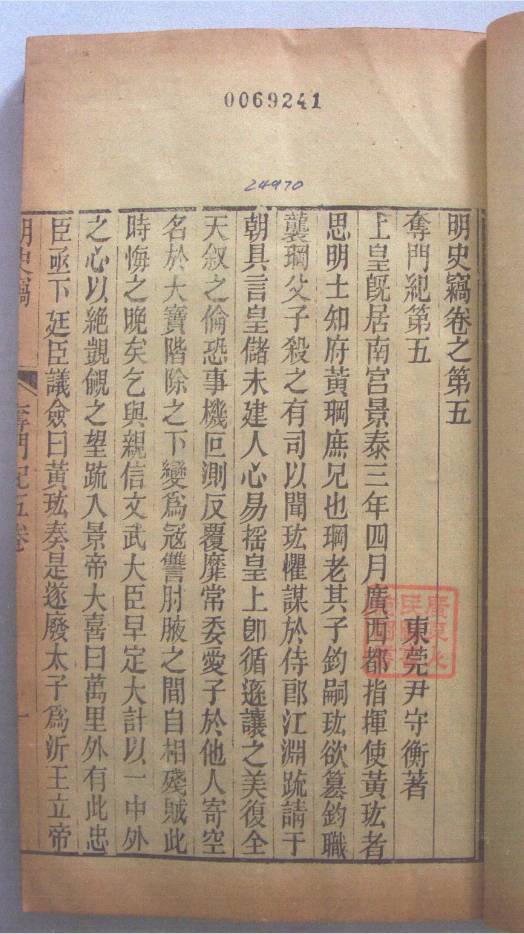 0069241
24970
明史竊卷之第五
東莞尹守衡著
奪門紀第五
上皇旣居南宫景泰三年四月廣西都指揮使黃玹者
思明土知府黃𤨏庶兄也𤨏老其子鈞嗣玹欲篡鈞職
襲𤨏父子殺之有司以聞玹懼謀於侍郎江淵疏請于
朝具言皇儲未建人心易揺皇上卽循遜讓之美復全
天叙之倫恐事機叵測反覆靡常委愛子於他人寄空
名於大寶階除之下變爲冦讐肘腋之間自相殘賊此
時悔之晚矣乞與親信文武大臣早定大計以一中外
之心以絶覬覦之望疏入景帝大喜曰萬里外有此忠
臣亟下廷臣議僉曰黃玹奏是遂廢太子爲沂王立帝
明史竊
奪門紀五卷
一